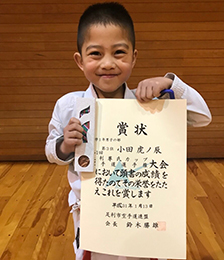 賞状
小田 虎ノ辰
大会
において頭書の成績を
得たのでその栄誉をたた
えこれを賞します
平成31年1月13日
足利市空手道連盟
会長 鈴木勝雄